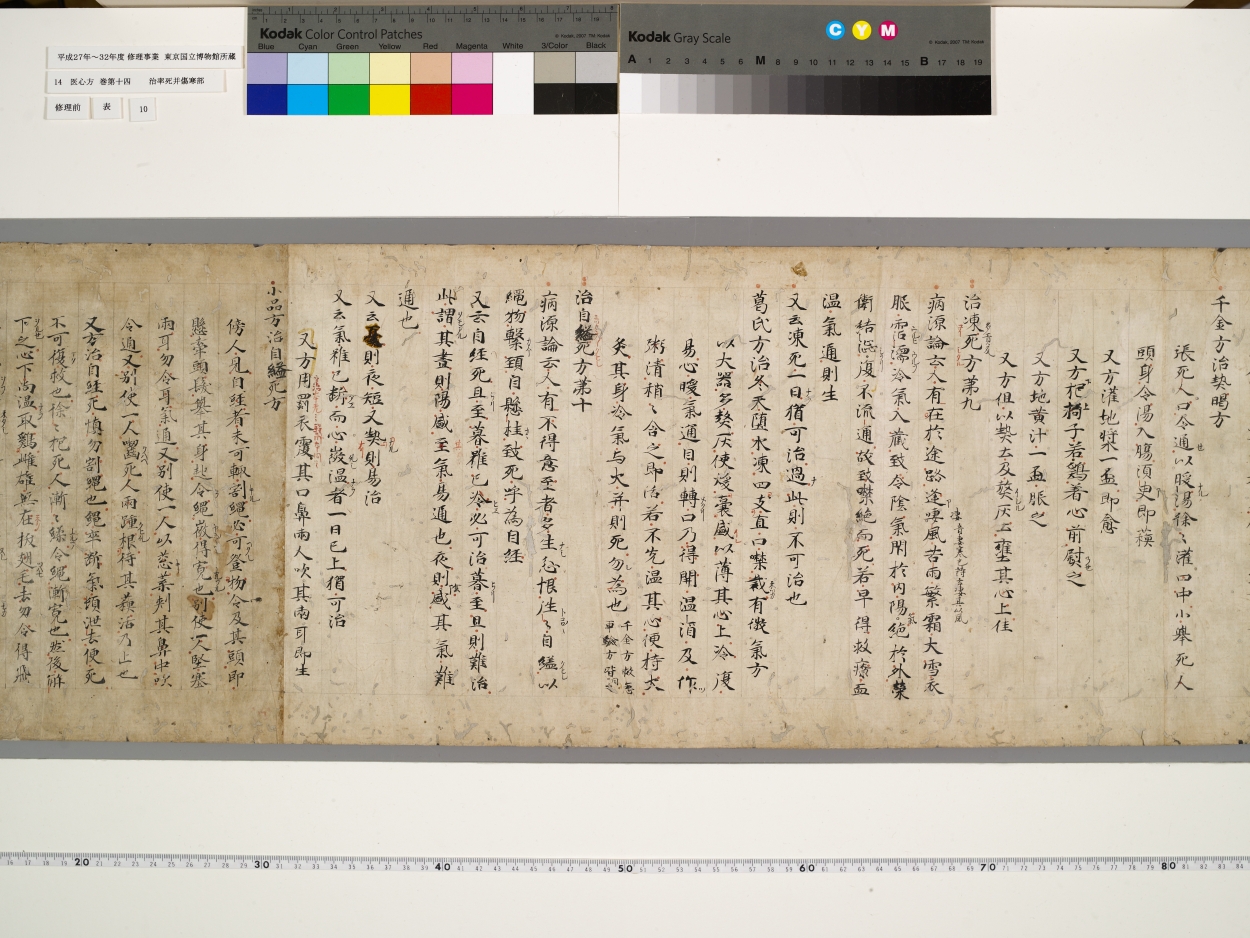 平成27年~32年度 修理事業 東京国立博物館所蔵
14 医心方 巻第十四 治卒死并傷寒部
修理前 表 10
Kodak Color Control Patches
© Kodak, 2007 TM: Kodak
Blue Cyan Green Yellow Red Magenta White 3/Color Black
Kodak Gray Scale
C Y M
© Kodak, 2007 TM: Kodak
A 1 2 3 4 5 6 M 8 9 10 11 12 13 14 15 B 17 18 19
千金方治熱暍方
張死人口令通以暖湯徐〻灌口中小舉死人
頭身令湯入腸須臾即蘓
又方灌地漿一盃即愈
又方杞捋子若鷄着心前尉之
又方地黄汁一盃服之
又方但以熱土及熬灰土壅其心上佳
治凍死方第九
病源論云人有在於途路逢凄風苦雨繁霜大雪衣
服霑濡冷氣入蔵致令陰氣閇於内陽絶於外榮
衛結澁不流通故致噤絶而死若早得救療血
温氣通則生
又云凍死一日猶可治過此則不可治也
葛氏方治冬天墮水凍四支直口噤裁有微氣方
以大器多熬灰使煖囊盛以薄其心上冷復
易心暖氣通目則轉口乃得開温消及作
粥清稍〻含之即活若不先温其心便持火
炙其身冷氣与火并則死勿為也
治自縊死方第十
病源論云人有不得意至者多生忿恨往〻自縊以
繩物繫頚自懸挂致死呼為自経
又云自経死旦至暮雖已冷必可治暮至旦則難治
此謂其晝則陽盛至氣易通也夜則盛其氣難
通也
又云夏則夜短又熱則易治
又云氣雖已斷而心㣲温者一日已上猶可治
又方用罰衣覆其口鼻兩人吹其兩耳即生
小品方治自縊死方
傍人見自経者未可輙割繩必可登物令及其頭即
懸牽頭髪舉其身起令繩微得寛也別使一人堅塞
兩耳勿令耳氣通又別使一人以葱葉刾其鼻中吹
令通又別使一人嚙死人兩踵根待其蘓活乃止也
又方治自経死慎勿割繩也繩卒斷氣頓泄去便死
不可復救也徐〻抱死人漸〻緩令繩漸寛也然後解
下之心下尚温取鷄雌雄無在抜翅毛去勿令得飛